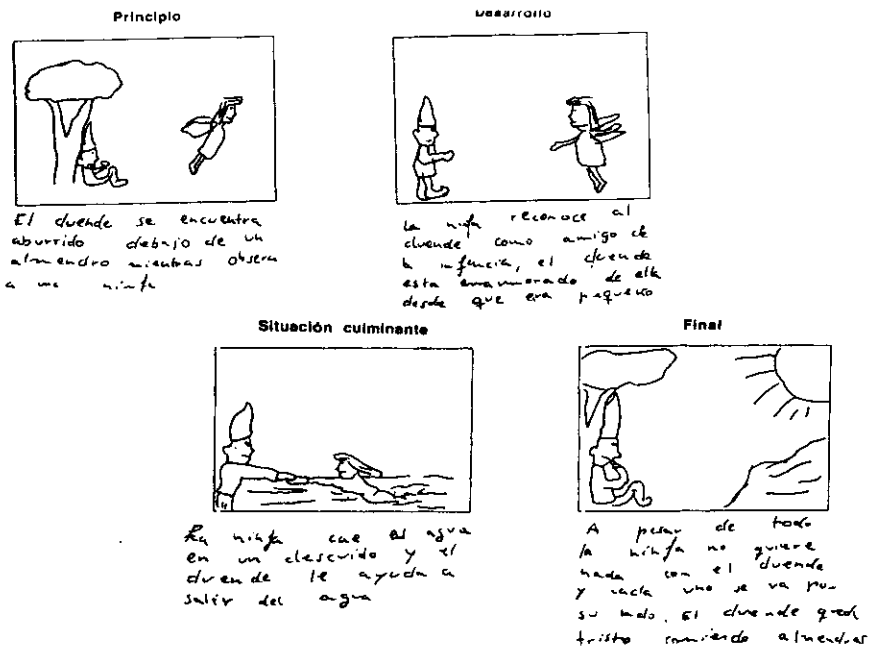 Principio
El duende se encuentra
aburrido debajo de un
almendro mientras observa
a una ninfa
Desarrollo
La ninfa reconoce al
duende como amigo de
la infancia, el duende
esta enamorado de ella
desde que era pequeño
Situación culminante
La ninfa cae al agua
en un descuido y el
duende le ayuda a
salir del agua
Final
A pesar de todo
la ninfa no quiere
nada con el duende
y cada uno se va por
su lado. El duende queda
triste comiendo almendras